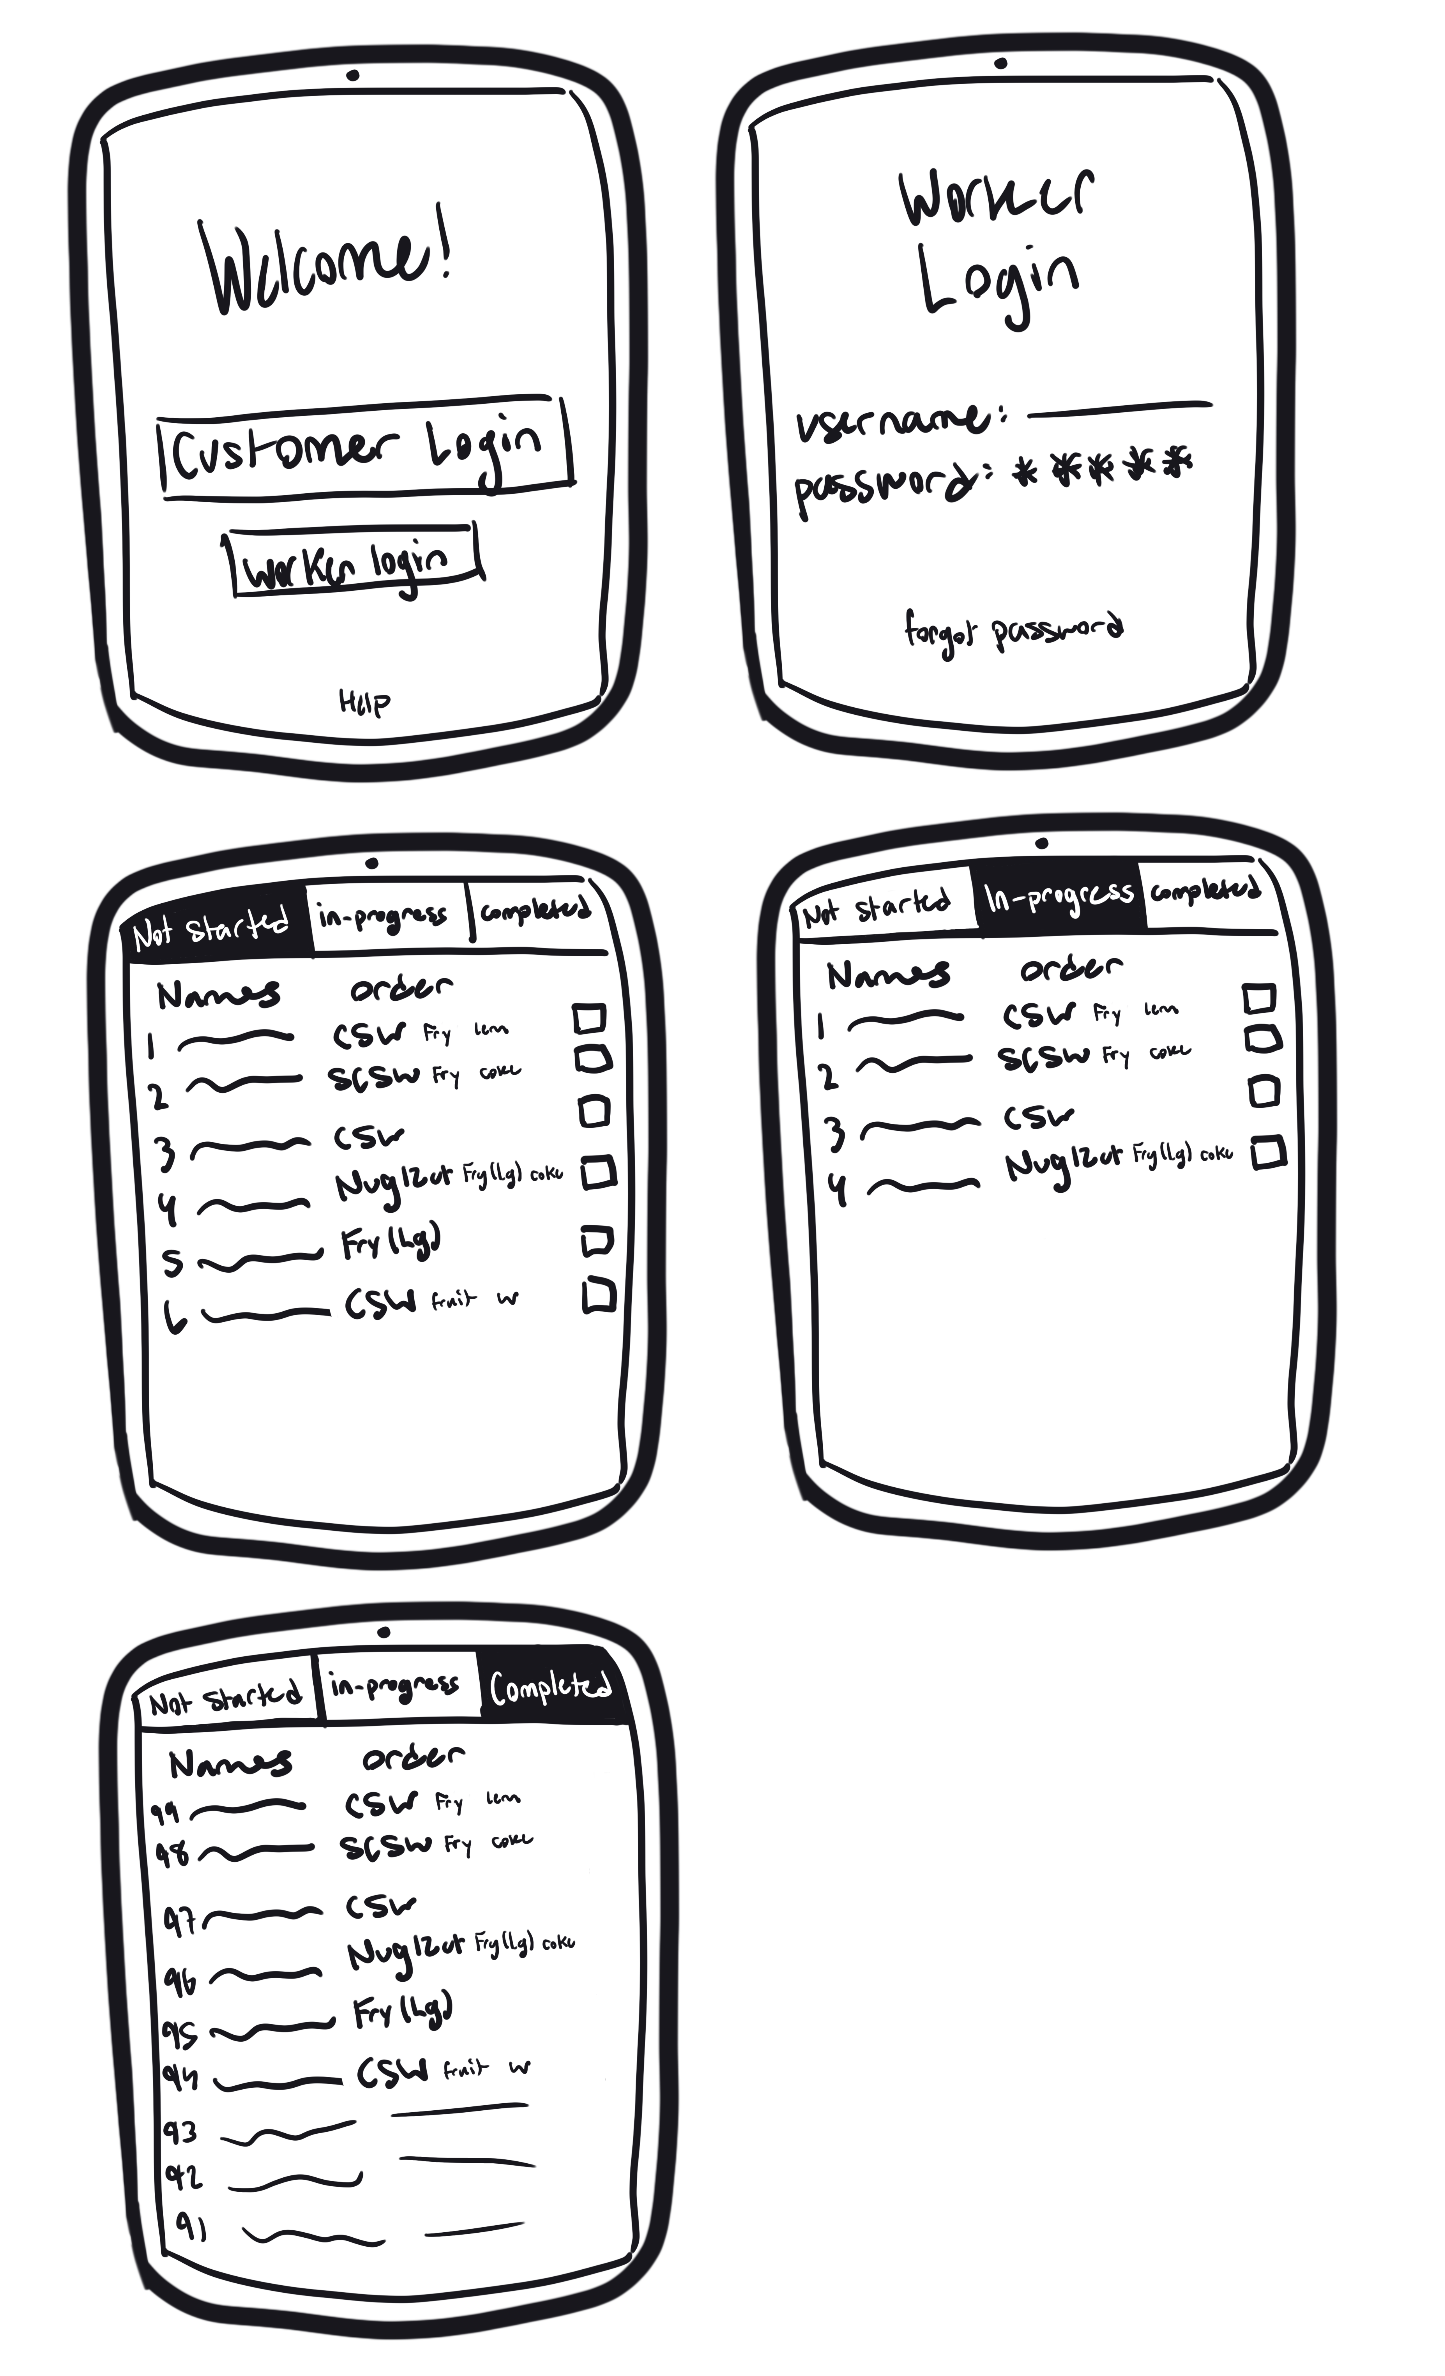 Welcome!
Customer Login
worker login
Help
Worker
Login
username:
password: * * * * *
forgot password
Not Started in-progress completed
Names order
1 CSW Fry lem
2 SCSW Fry coke
3 CSW
4 Nug12ct Fry(Lg) coke
5 Fry (Lg)
6 CSW fruit w
Not Started In-progress completed
Names order
1 CSW Fry lem
2 SCSW Fry coke
3 CSW
4 Nug12ct Fry(Lg) coke
Not Started in-progress Completed
Names order
99 CSW Fry lem
98 SCSW Fry coke
97 CSW
96 Nug12ct Fry(Lg) coke
95 Fry (Lg)
94 CSW fruit w
93
92
91